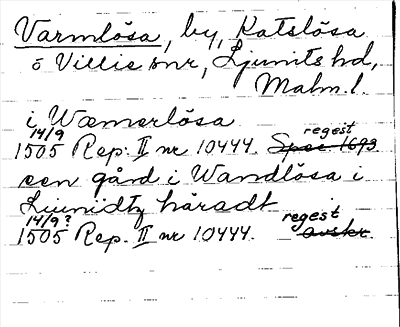 Varmlösa, by, Katslösa
o Villie snr, Ljunits hd,
Malm. l.
i Wæmerlösa
14/9 regest
1505 Rep. II nr 10444. Spec 1693
een gård i Wandlösa i
Liunidtz häradt
14/9? regest
1505 Rep. II nr 10444. avskr.